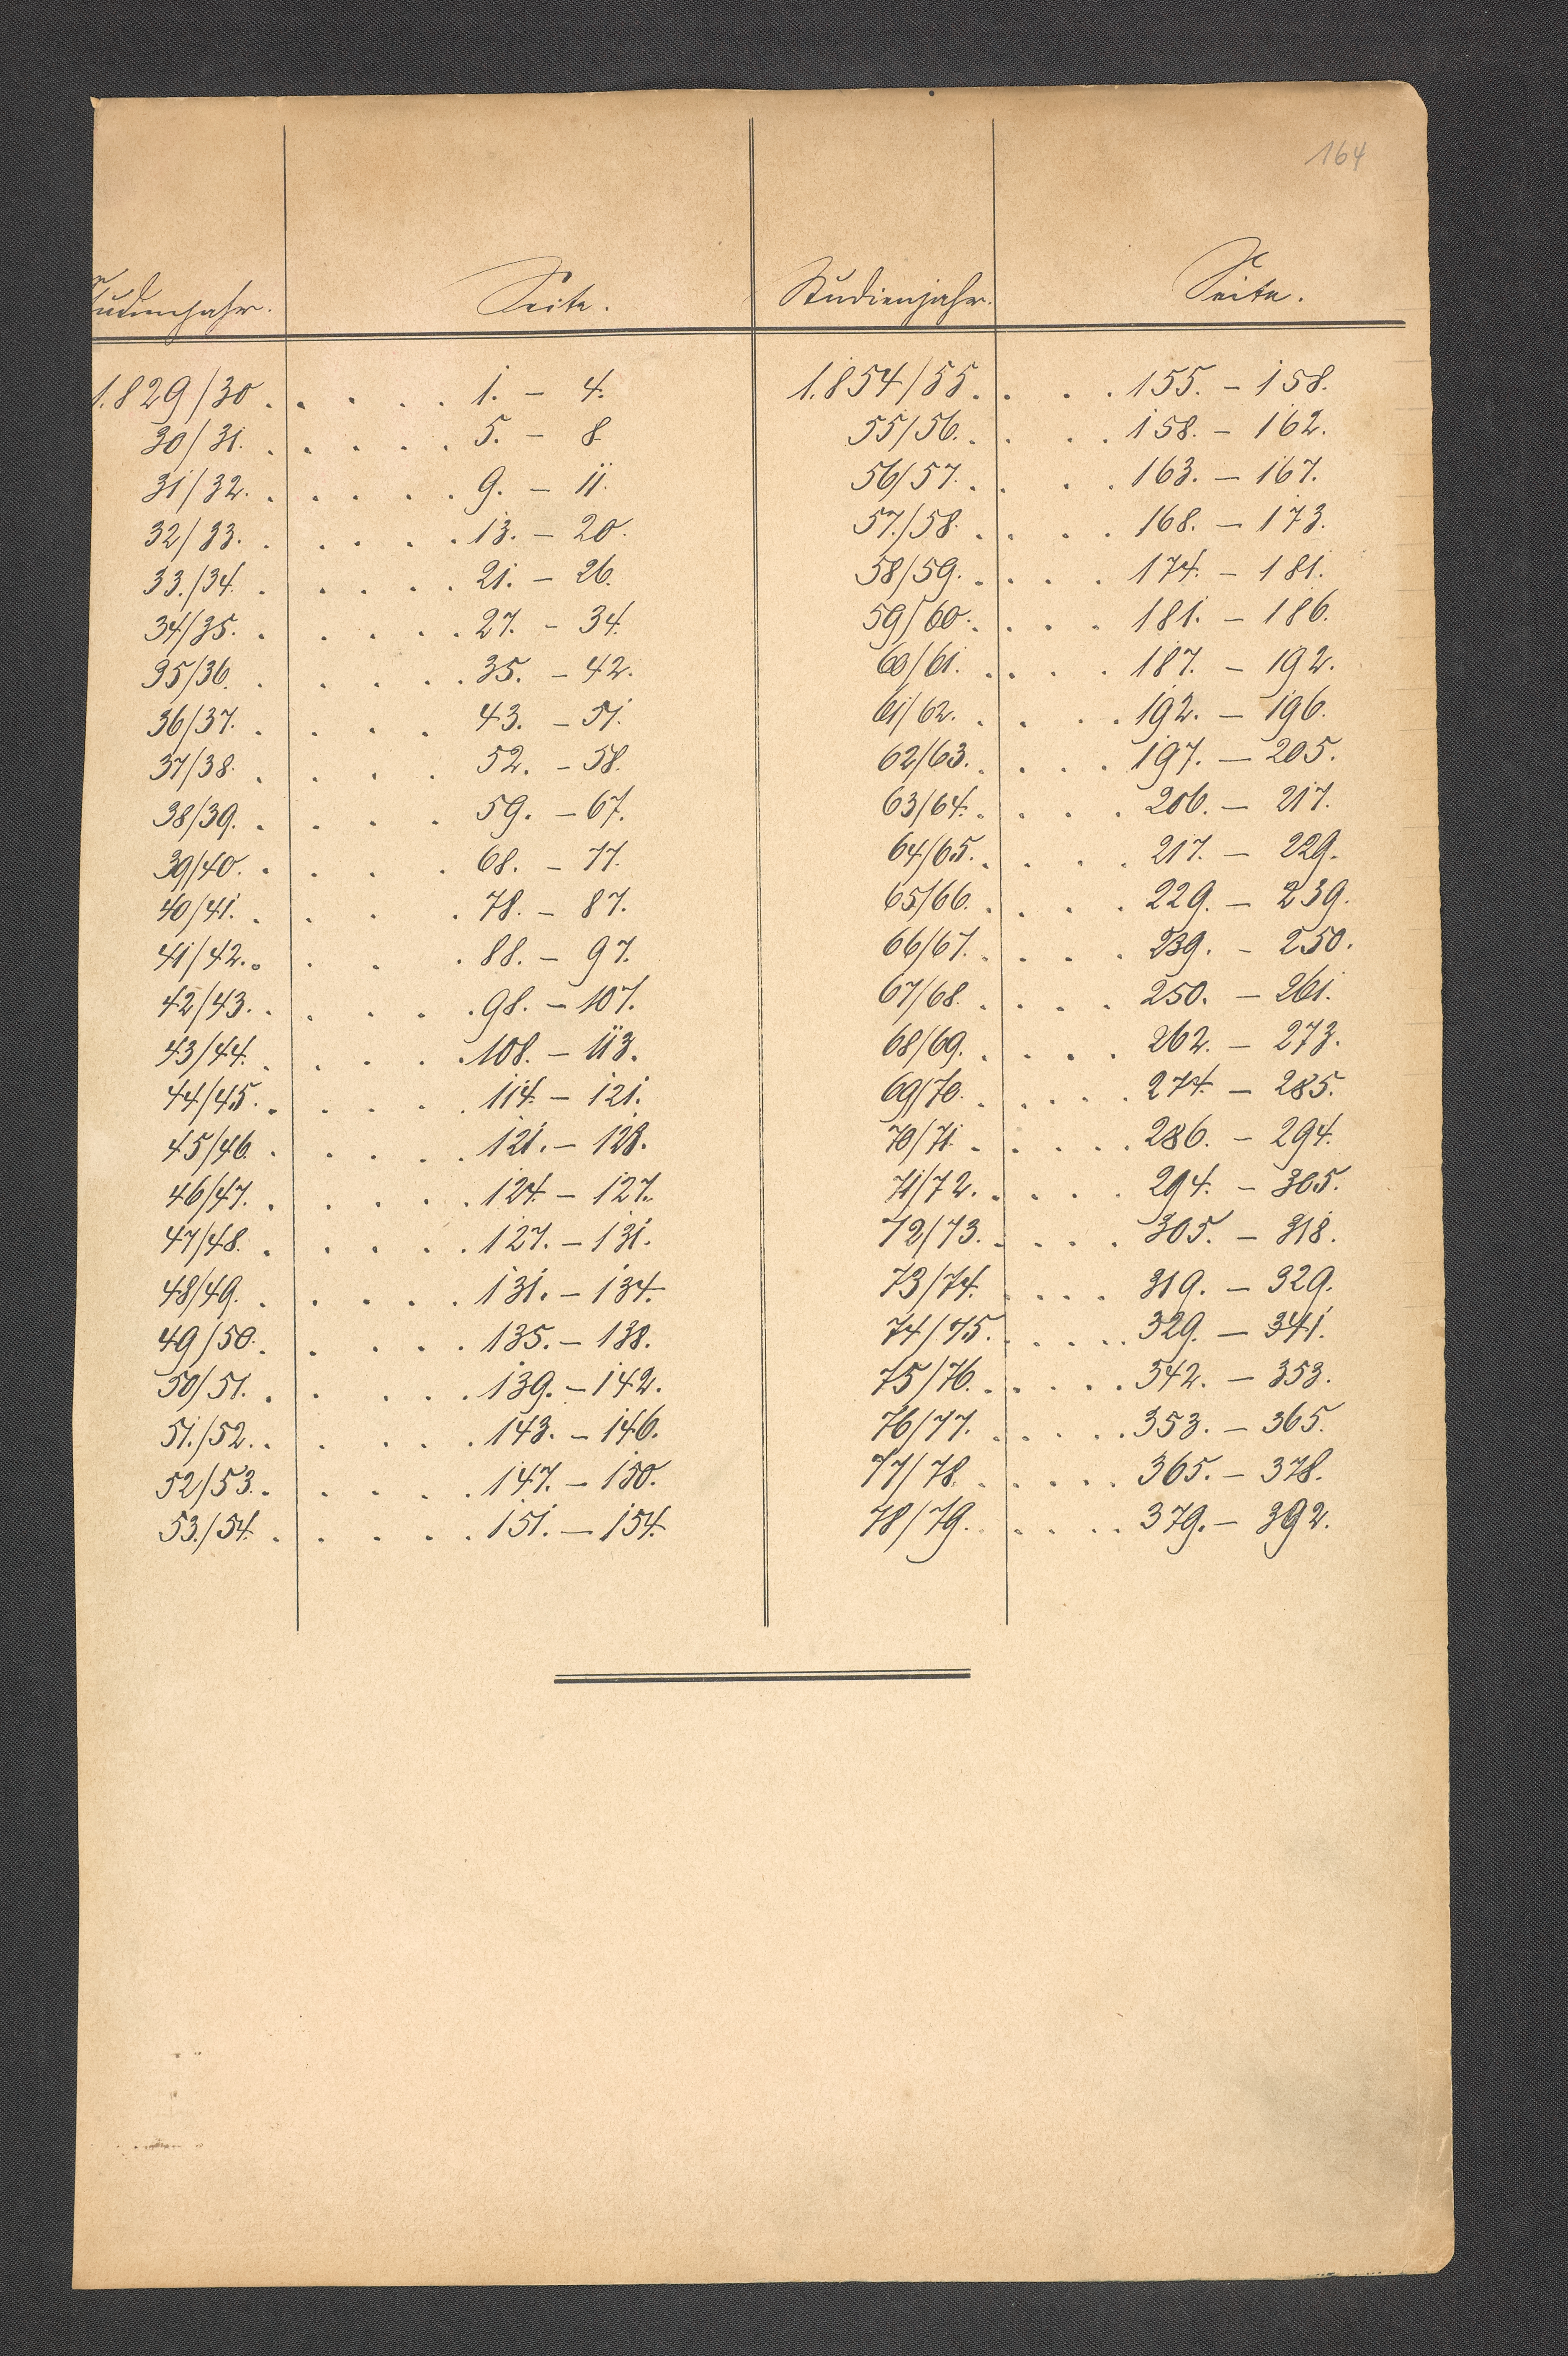 164
Studienjahr. Seite. Studienjahr. Seite.
1.829/30 . . . . . 1. – 4. 1.854/55. . . . 155. – 158.
30/31. . . . . . 5. – 8. 55/56. . . . . 158. – 162.
31/32. . . . . . 9. – 11. 56/57. . . . . 163. – 167.
32/33. . . . . . 13. – 20. 57./58. . . . . 168. – 173.
33./34. . . . . . 21. – 26. 58/59. . . . . 174. – 181.
34/35. . . . . . 27. – 34. 59/60. . . . . 181. – 186.
35/36. . . . . . 35. – 42. 60/61. . . . . 187. – 192.
36/37. . . . . 43. – 51. 61/62. . . . . 192. – 196.
37/38. . . . . 52. – 58. 62/63. . . . . 197. – 205.
38/39. . . . . 59. – 67. 63/64. . . . . 206. – 217.
39/40. . . . . 68. – 77. 64/65. . . . . 217. – 229.
40/41. . . . . 78. – 87. 65/66. . . . . 229. – 239.
41/42. . . . . 88. – 97. 66/67. . . . . 239. – 250.
42/43. . . . . . 98. – 107. 67/68. . . . . 250. – 261.
43/44. . . . . . 108. – 113. 68/69. . . . . 262. – 273.
44/45. . . . . . 114. – 121. 69/70. . . . . . 274. – 285.
45/46. . . . . . 121. – 123. 70/71. . . . . . 286. – 294.
46/47. . . . . . 124. – 127. 71/72. . . . . 294. – 305.
47/48. . . . . . 127. – 131. 72/73. . . . . 305. – 318.
48/49. . . . . . 131. – 134. 73/74. . . . . 319. – 329.
49/50. . . . . . 135. – 138. 74/75. . . . . 329. – 341.
50/51. . . . . . 139. – 142. 75/76. . . . . . 342. – 353.
51./52. . . . . . 143. – 146. 76/77. . . . . . 353. – 365.
52/53. . . . . . 147. – 150. 77/78. . . . . . 365. – 378.
53./54. . . . . . 151. – 154. 78/79. . . . . 379. – 392.